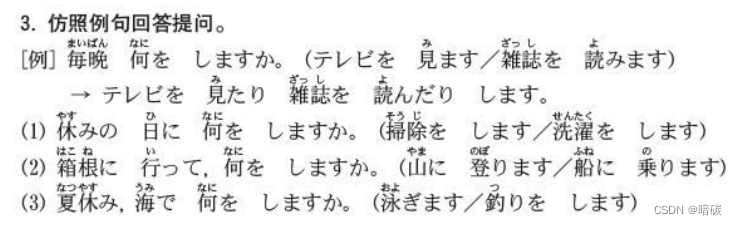 3. 仿照例句回答提问。
まいばん なに み ざっし よ
[例] 毎晩 何を しますか。(テレビを 見ます/雑誌を 読みます)
み ざっし よ
→ テレビを 見たり 雑誌を 読んだり します。
やす ひ なに そうじ せんたく
(1) 休みの 日に 何を しますか。(掃除を します/洗濯を します)
はこね い なに やま のぼ ふね の
(2) 箱根に 行って, 何をしますか。(山に 登ります/船に 乗ります)
なつやす うみ なに およ つ
(3) 夏休み, 海で 何を しますか。(泳ぎます/釣りを します)
CSDN @暗碳